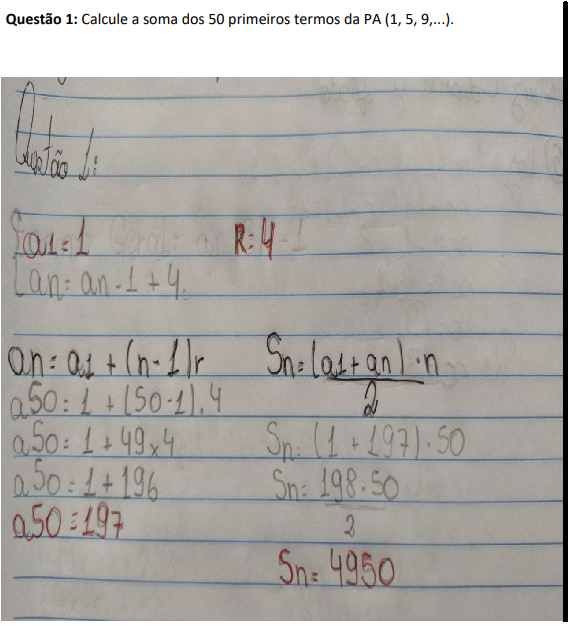 Questão 1: Calcule a soma dos 50 primeiros termos da PA (1, 5, 9,...).
Questão 1:
a1 = 1 R = 4
an = an-1 + 4.
an = a1 + (n-1)r
a50 = 1 + (50-1).4
a50 = 1 + 49x4
a50 = 1 + 196
a50 = 197
Sn = (a1 + an) . n
2
Sn = (1 + 197) . 50
Sn = 198 . 50
2
Sn = 4950